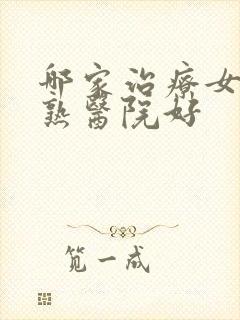 那家治療女
熟醫院好
笕一成